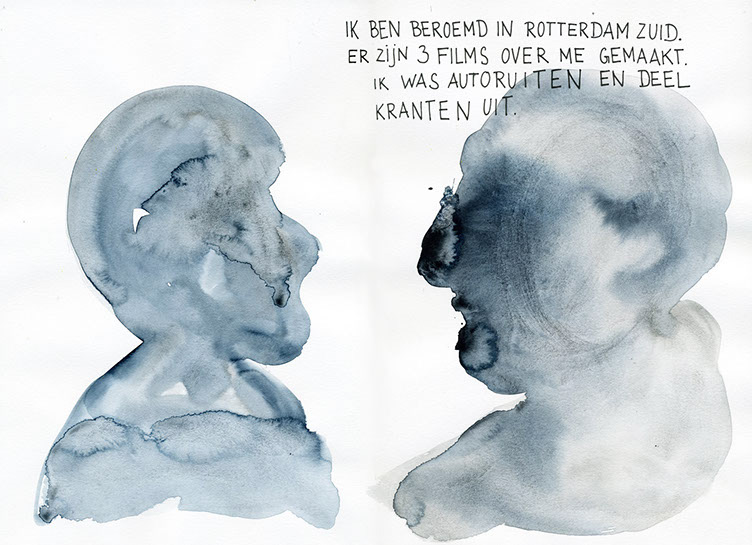 IK BEN BEROEMD IN ROTTERDAM ZUID.
ER ZIJN 3 FILMS OVER ME GEMAAKT.
IK WAS AUTORUITEN EN DEEL
KRANTEN UIT.